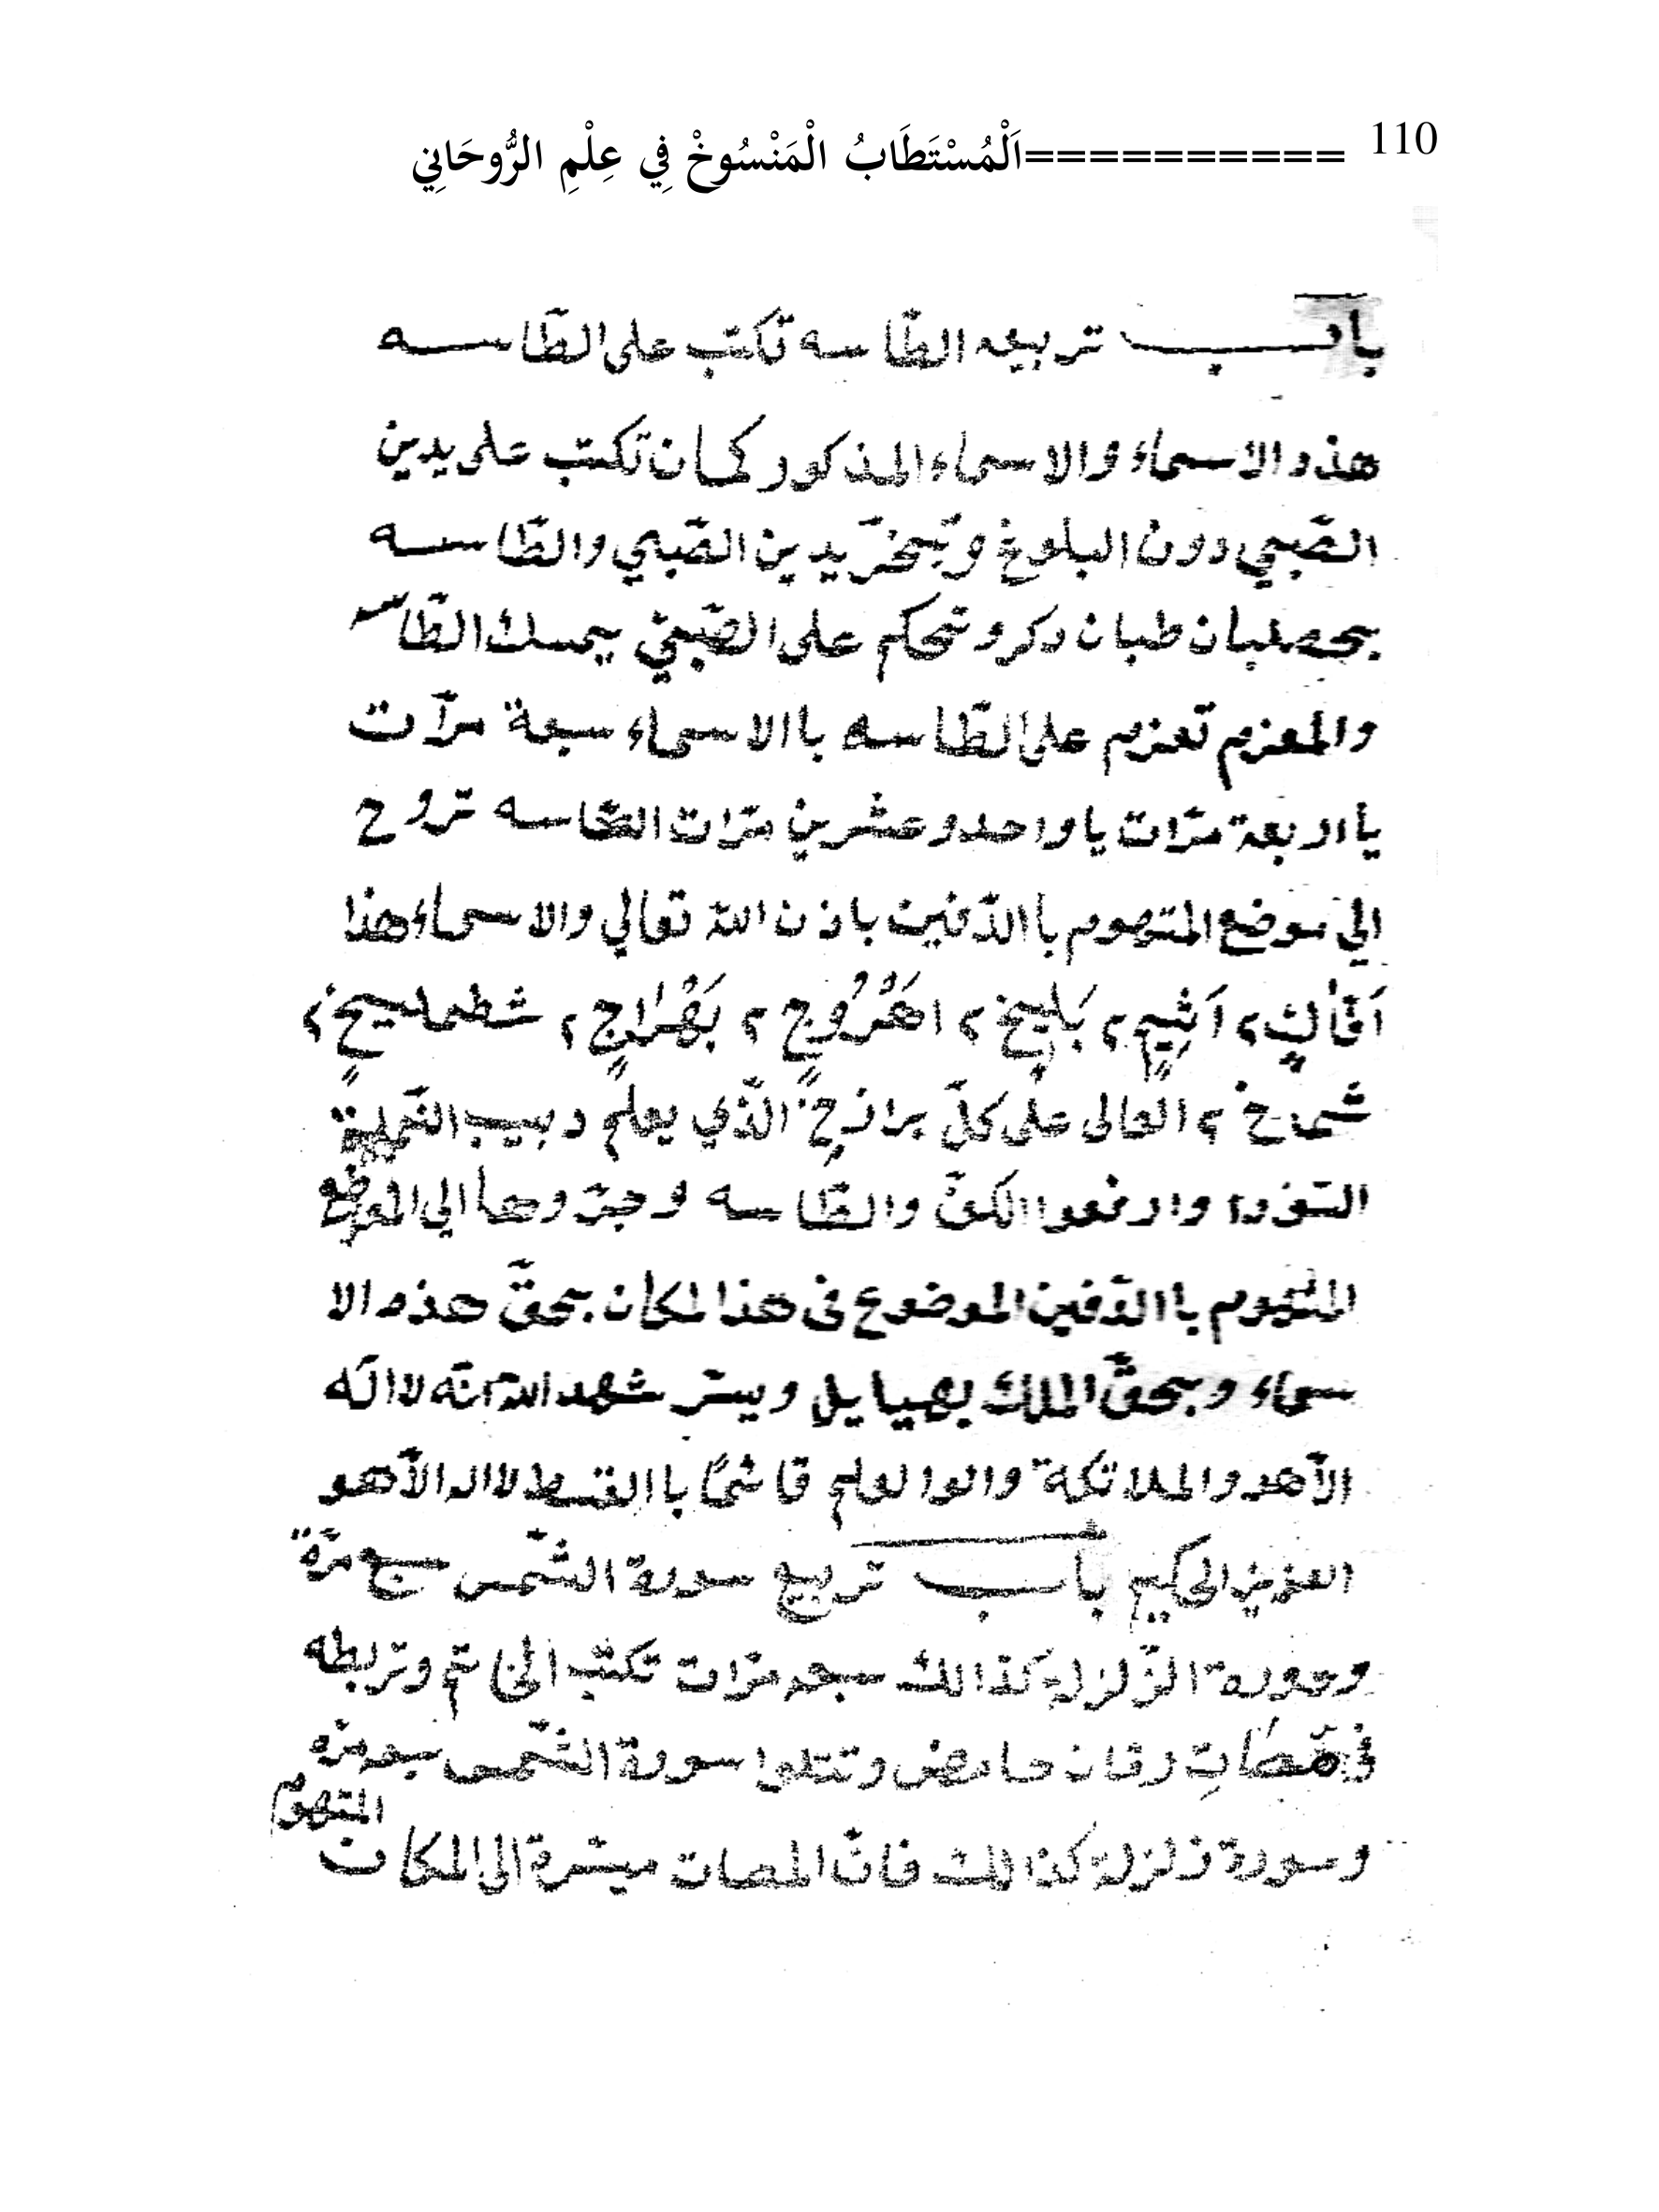 110 ==========اَلْمُسْتَطَابُ الْمَنْسُوخْ فِي عِلْمِ الرُّوحَانِي
باب تربيعه الطّاسه تكتب على الطّاسه
هذه الاسماء والاسماء المذكور كمان تكتب على يدين
الصّبي دون البلوغ وتبخّر يدين الصّبي والطّاسه
طبان دكر وتحكم على الصّبيّ يمسك الطّاسه
والمعزم تعزم على الطّاسه باالاسماء سبعة مرّات
يا اربعة مرّات يا واحد وعشرين مرّات الطّاسه تروح
الي موضع المتهوم باالدّفين باذن اللّه تعالي والاسماء هذا
اَثِيمٍ ٢ بَلِيخٍ ٢ اهْرُوجٍ ٢ بَهْرَاجٍ ٢
شماخ ٢ العالى على كلّ براخ الّذي يعلم دبيب النّملة
السّودا وارفعوا الكفّ والطّاسه وجرّوها الي الموضع
المتهوم باالدّفين الموضوع فى هذا لمكان بحقّ هذه الا
سماء وبحقّ الملك يهيايل شهد اللّه انّه لا اله
الّا هو والملائكة والوا لعلم قائمًا باالقسط لا اله الّا هو
العزيز الحكيم باب تربيع سورة الشّمس سبع مرّة
وسورة الزّلزلة كذالك سبعه مرّات تكتب الخاتم وتربطه
فى رمّان حامض وتتلوا سورة الشّمس سبعه مرّه
المتهوم
وسورة زلزلة كذالك فانّ المصات ميسّرة الى المكان